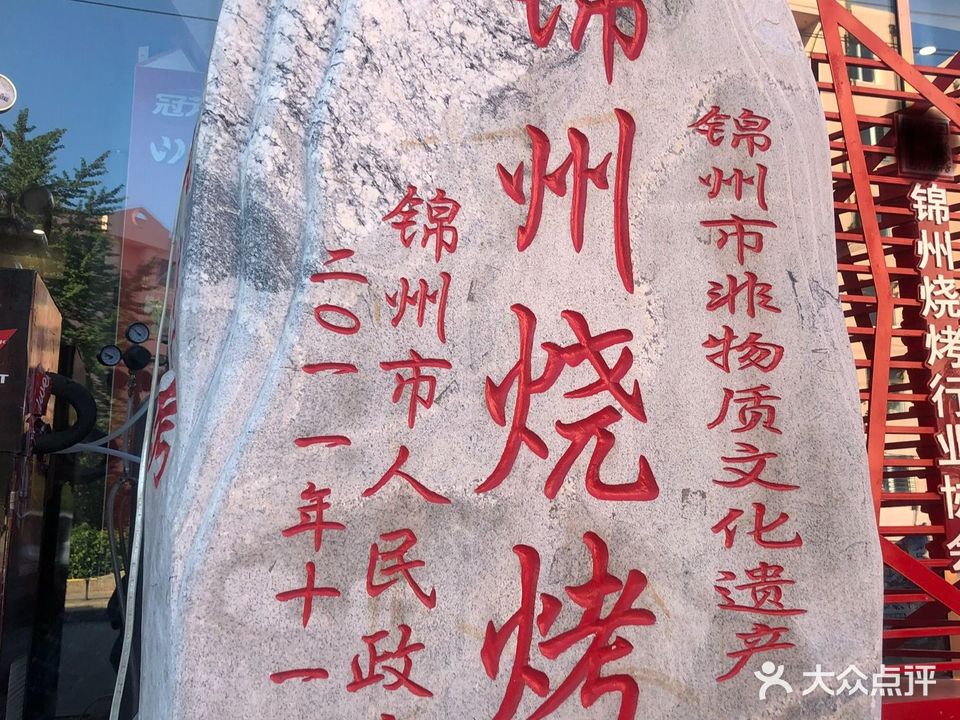 锦州市非物质文化遗产
锦州烧烤
锦州市人民政
二〇一一年十一
锦州烧烤行业协会
大众点评